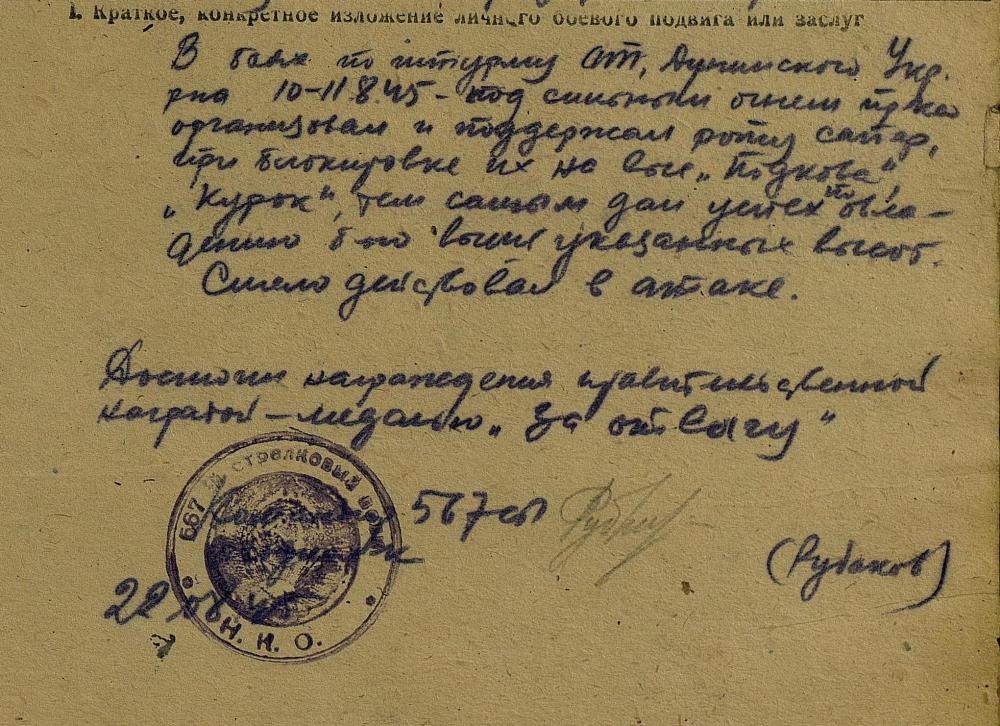 I. Краткое, конкретное изложение личного боевого подвига или заслуг
В боях по штурму Дунинского Укр.
рна 10-11.8.45 - под сильным огнем пр-ка
организовал и поддержал роту сапер,
при блокировке их на выс „Подкова",
„Курок", тем самым дал успех по овла-
дению выше указанных высот.
Смело действовал в атаке.
Достоин награждения правительственной
наградой - медалью „За отвагу"
567 сп
(Рубаков)
22.08.45
567 стрелковый
Н. К. О.